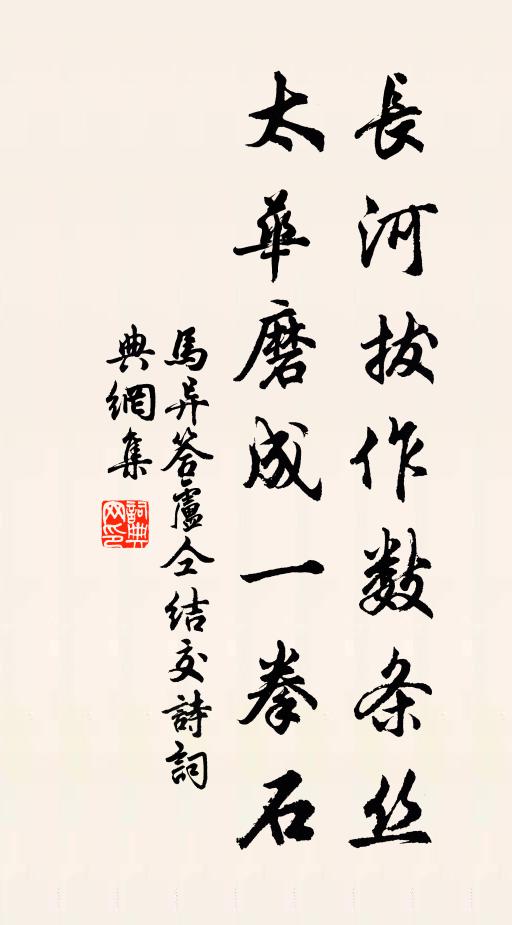 長河拔作数条丝
太華磨成一拳石
馬异答盧仝结交詩詞
典網集
詞典网印